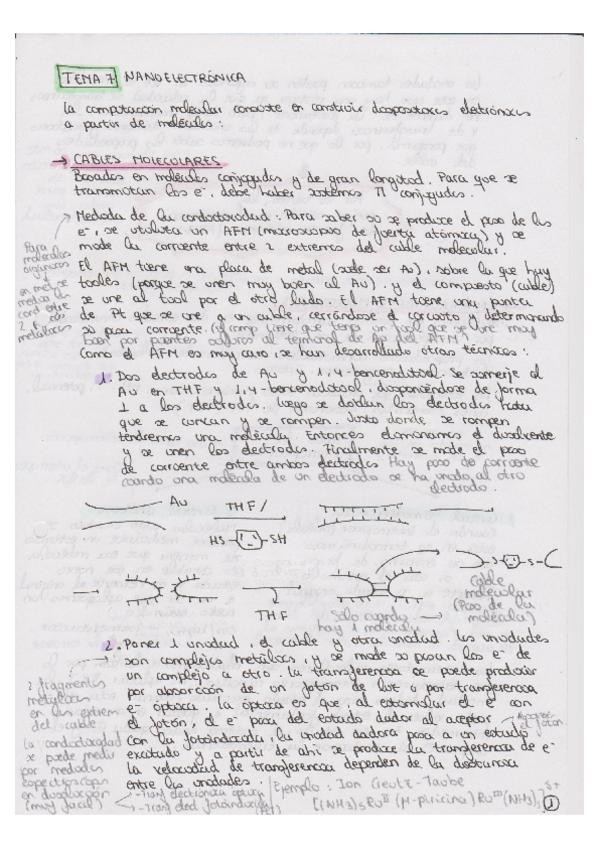 TEMA 7 NANOELECTRÓNICA
La computación molecular consiste en construir dispositivos electrónicos
a partir de moléculas:
→ CABLES MOLECULARES
Basados en moléculas conjugadas y de gran longitud. Para que se
transmitan los e⁻, debe haber sistemas π conjugados.
Medida de la conductividad: Para saber si se produce el paso de los
e⁻, se utiliza un AFM (microscopio de fuerza atómica) y se
mide la corriente entre 2 extremos del cable molecular.
Para
moléculas
orgánicas
El AFM tiene una placa de metal (suele ser Au), sobre la que hay
tioles (porque se unen muy bien al Au). y el compuesto (cable)
se une al tiol por el otro lado. El AFM tiene una punta
de Pt que se une a un cable, cerrándose el circuito y determinando
si pasa corriente. (el comp tiene que tener un tiol que se une muy
bien por puentes al terminal de del AFM)
Como el AFM es muy caro, se han desarrollado otras técnicas:
1. Dos electrodos de Au y 1,4-bencenoditiol. Se sumerje el
Au en THF y 1,4-bencenoditiol, disponiéndose de forma
⊥ a los electrodos. Luego se doblan los electrodos hasta
que se curvan y se rompen. Justo donde se rompen
tendremos una molécula. Entonces eliminamos el disolvente
y se unen los electrodos. Finalmente se mide el paso
de corriente entre ambos electrodos Hay paso de corriente
cuando una molécula de un electrodo se ha unido al otro
electrodo.
Au THF/
HS- -SH
-S- -S-
THF
Sólo cuando
hay 1 molécula
Cable
molecular
(Paso de la
molécula)
2. Poner 1 unidad, el cable y otra unidad. Las unidades
son complejos metálicos, y se mide si pasan los e⁻ de
un complejo a otro. La transferencia se puede producir
por absorción de un fotón de luz o por transferencia
e⁻ óptica. La óptica es que, al estimular el e⁻ con
el fotón, el e⁻ pasa del estado dador al aceptor
con la fotoinducida, la unidad dadora pasa a un estado
excitado y a partir de ahí se produce la transferencia de e⁻
La velocidad de transferencia depende de la distancia
entre las unidades.
2 fragmentos
metálicos
en los extremos
del cable
La conductividad
se puede medir
por medidas
espectroscopicas
en disolución
(muy facil)
-Transf electrónica óptica
-Transf elect fotoinducida
Ejemplo: Ion Creutz-Taube
[(NH3)5RuII (μ-piricina) RuIII(NH3)5]5+
1